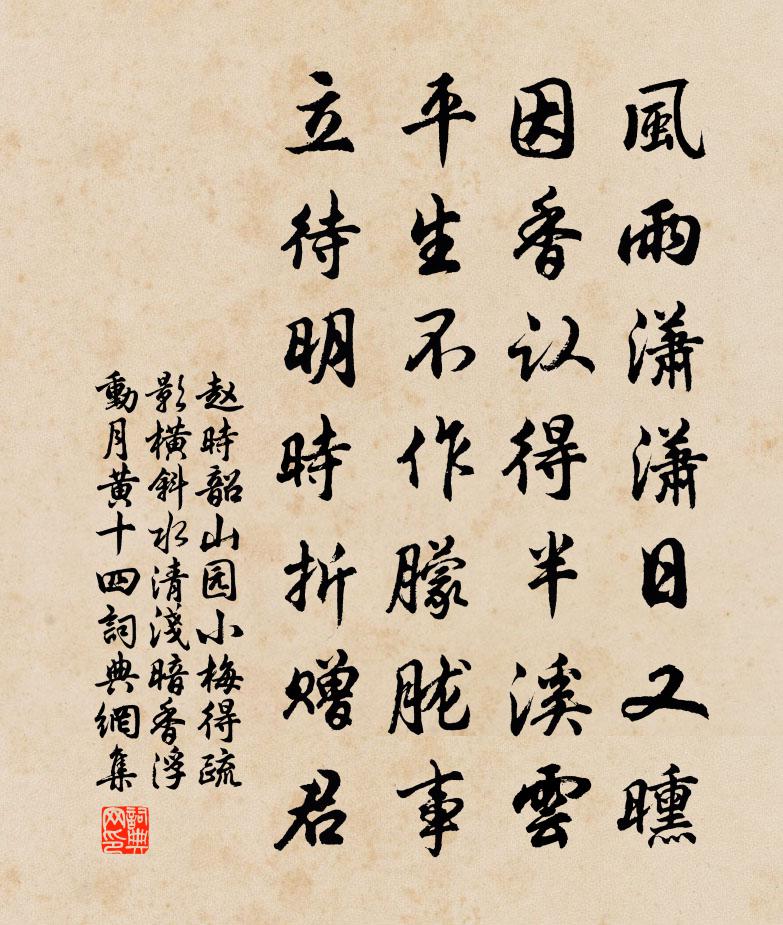 風雨瀟瀟日又曛
因香认得半溪雲
平生不作朦胧事
立待明時折赠君
赵時韶山园小梅得疏
影横斜水清淺暗香浮
動月黄十四詞典網集
詞典网印